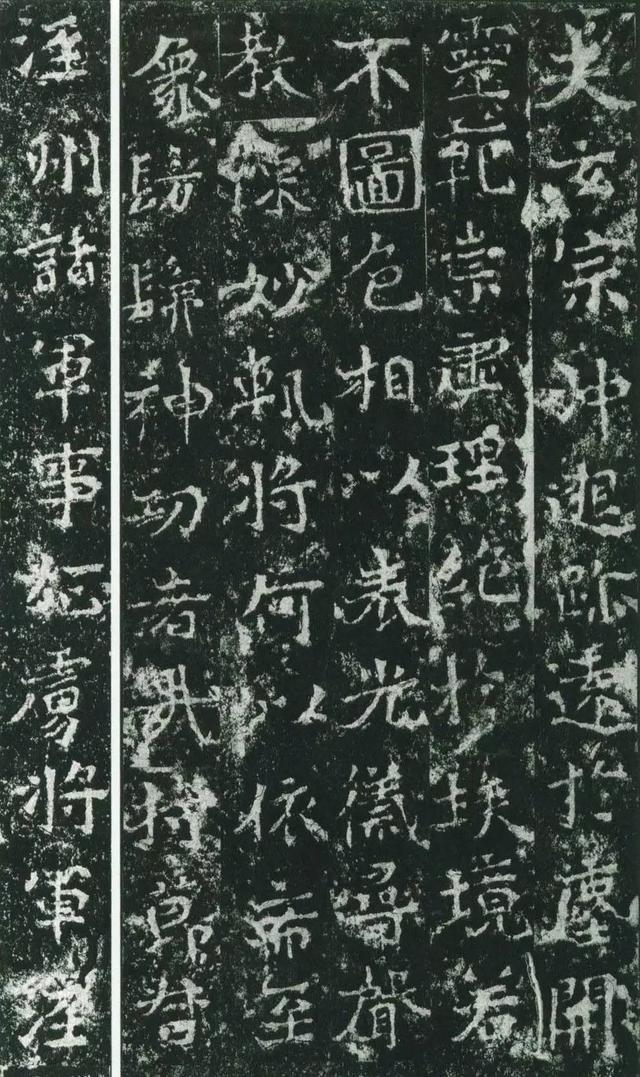 夫玄宗沖邈跡遠於塵開
靈範崇虛理絕於埃境若
不圖色相以表光儀尋聲
教緣妙軌將何以依希至
象髣髴神功者哉持節督
涇州諸軍事征虜將軍涇